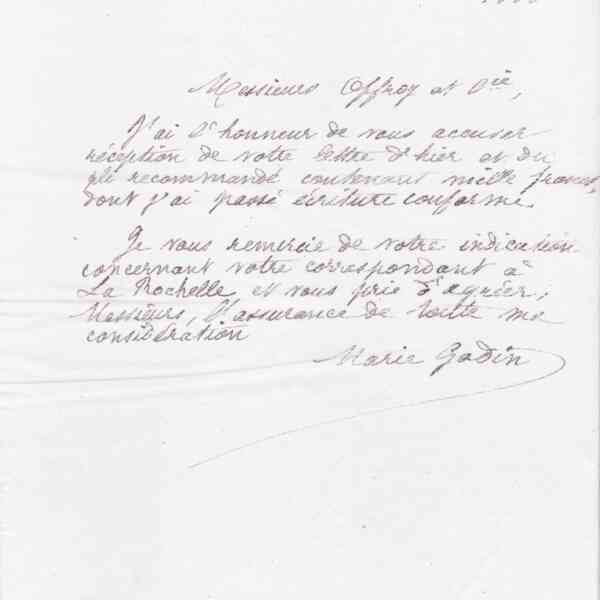 Messieurs Offroy et Cie,
J'ai l'honneur de vous accuser
réception de votre lettre d'hier et du
pli recommandé contenant mille francs,
dont j'ai passé écriture conforme.
Je vous remercie de votre indication
concernant votre correspondant à
La Rochelle et vous prie d'agréer,
Messieurs, l'assurance de toute ma
considération
Marie Godin